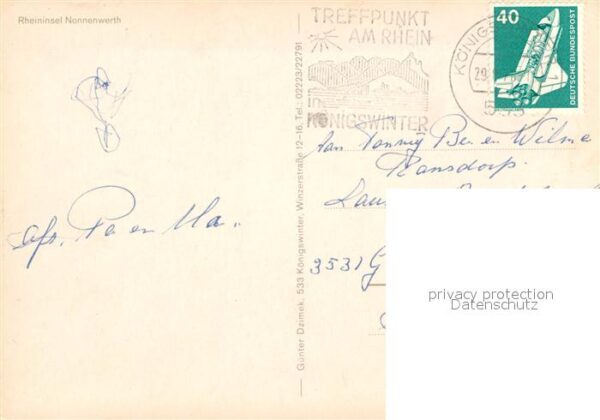 Rheininsel Nonnenwerth
TREFFPUNKT
AM RHEIN
KÖNIGSWINTER
KÖNIGS
29.
533
40
DEUTSCHE BUNDESPOST
Günter Dzimek, 533 Königswinter, Winzerstraße 12-16, Tel.: 02223/22791
Afs. Pa en Ma.
Fam Ben en Wilma
Ransdorp.
3531 G
privacy protection
Datenschutz